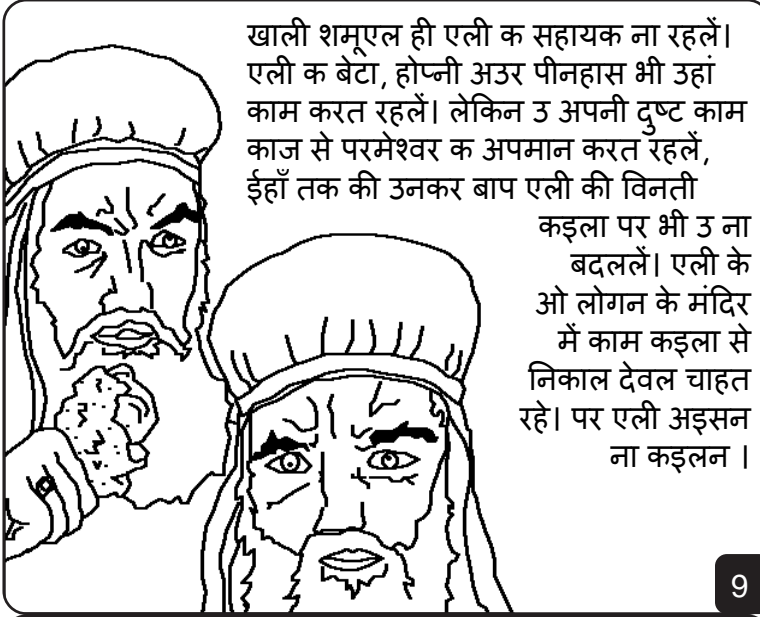 खाली शमूएल ही एली क सहायक ना रहलें।
एली क बेटा, होप्नी अउर पीनहास भी उहां
काम करत रहलें। लेकिन उ अपनी दुष्ट काम
काज से परमेश्वर क अपमान करत रहलें,
ईहाँ तक की उनकर बाप एली की विनती
कइला पर भी उ ना
बदललें। एली के
ओ लोगन के मंदिर
में काम कइला से
निकाल देवल चाहत
रहे। पर एली अइसन
ना कइलन ।
9